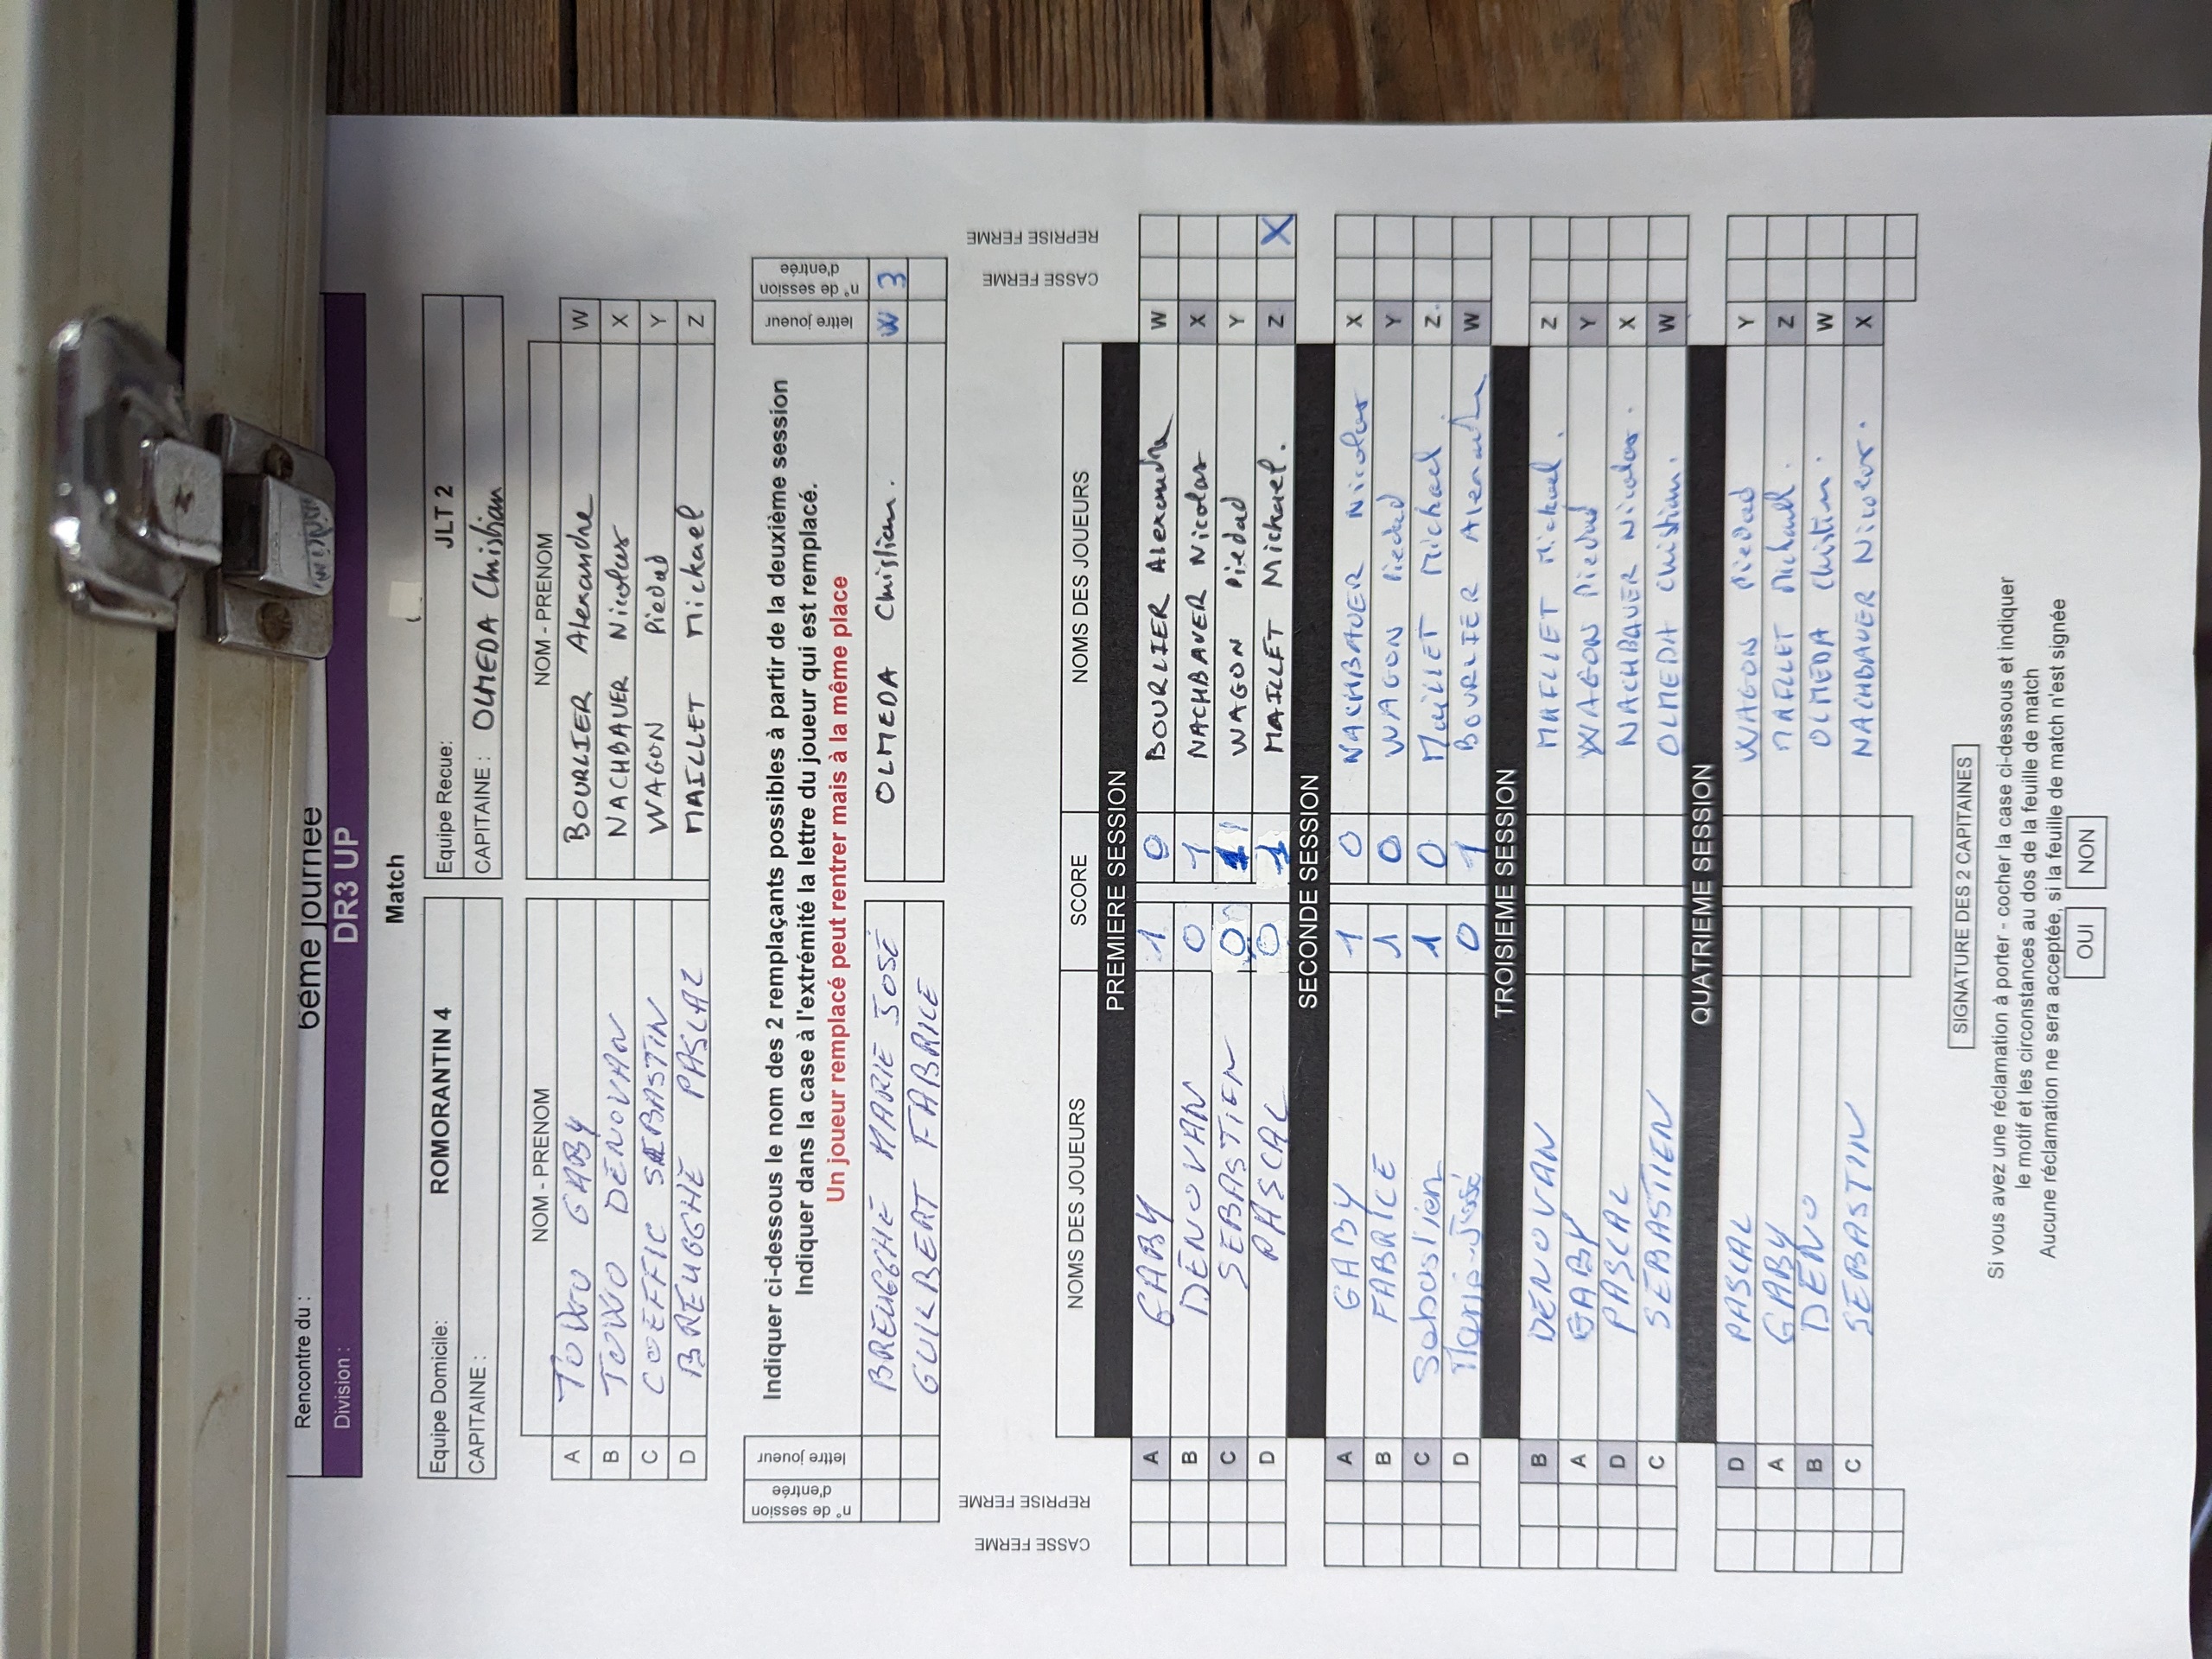 Rencontre du : 6ème journée
Division : DR3 UP
Match
Equipe Domicile: ROMORANTIN 4 Equipe Recue: JLT 2
CAPITAINE : CAPITAINE : OLMEDA Christian
NOM - PRENOM NOM - PRENOM
A GABY BOURLIER Alexandre W
B DENOVAN NACHBAUER Nicolas X
C COEFFIC SEBASTIN WAGON Piedad Y
D BREUGGHE PASCAL MAILLET Mickael Z
Indiquer ci-dessous le nom des 2 remplaçants possibles à partir de la deuxième session
Indiquer dans la case à l'extrémité la lettre du joueur qui est remplacé.
Un joueur remplacé peut rentrer mais à la même place
n° de session d'entrée lettre joueur lettre joueur n° de session d'entrée
BREUGGHE MARIE JOSÉ OLMEDA Christian. W 3
GUILBERT FABRICE
CASSE FERME REPRISE FERME CASSE FERME REPRISE FERME
NOMS DES JOUEURS SCORE NOMS DES JOUEURS
PREMIERE SESSION
A GABY 1 0 BOURLIER Alexandre W
B DENOVAN 0 1 NACHBAUER Nicolas X
C SEBASTIEN 0 1 WAGON Piedad Y
D PASCAL 0 1 MAILLET Mickael. Z X
SECONDE SESSION
A GABY 1 0 NACHBAUER Nicolas X
B FABRICE 1 0 WAGON Piedad Y
C Sebastien 1 0 Maillet Michael Z
D Marie-José 0 1 BOURLIER W
TROISIEME SESSION
B DENOVAN MAILLET Mickael. Z
A GABY WAGON Piedad Y
D PASCAL NACHBAUER Nicolas. X
C SEBASTIEN OLMEDA Christian. W
QUATRIEME SESSION
D PASCAL WAGON Piedad Y
A GABY Z
B DENO OLMEDA W
C SEBASTIN NACHBAUER X
SIGNATURE DES 2 CAPITAINES
Si vous avez une réclamation à porter - cocher la case ci-dessous et indiquer
le motif et les circonstances au dos de la feuille de match
Aucune réclamation ne sera acceptée, si la feuille de match n'est signée
OUI NON